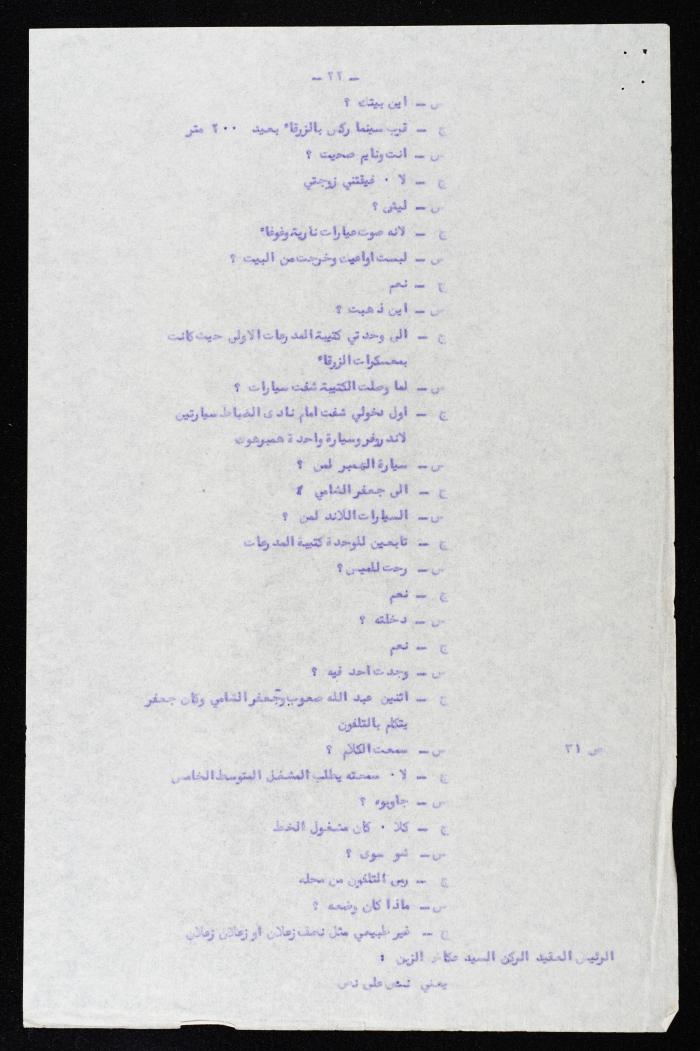 - ٢٢ -
س - اين بيتك ؟
ج - قرب سينما ركس بالزرقاء بعيد ٢٠٠ متر
س - انت ونايم صحيت ؟
ج - لا ٠ فيقتني زوجتي
س - ليش ؟
ج - لانه صوت عيارات نارية وغوغاء
س - لبست اواعيك وخرجت من البيت ؟
ج - نعم
س - اين ذهبت ؟
ج - الى وحدتي كتيبة المدرعات الاولى حيث كانت
بمعسكرات الزرقاء
س - لما وصلت الكتيبة شفت سيارات ؟
ج - اول دخولي شفت امام نادى الضباط سيارتين
لاند روفر وسيارة واحدة همبرهوك
س - سيارة الهمبر لمن ؟
ج - الى جعفر الشامي
س - السيارات اللاند لمن ؟
ج - تابعين للوحدة كتيبة المدرعات
س - رحت للميس ؟
ج - نعم
س - دخلته ؟
ج - نعم
س - وجدت احد فيه ؟
ج - اثنين عبد الله صعوب وجعفر الشامي وكان جعفر
يتكلم بالتلفون
س - سمعت الكلام ؟ ص ٣١
ج - لا ٠ سمعته يطلب المشغل المتوسط الخامس
س - جاوبوه ؟
ج - كلا ٠ كان مشغول الخط
س - شو سوى ؟
ج - رمى التلفون من محله
س - ماذا كان وضعه ؟
ج - غير طبيعي مثل نصف زعلان او زعلان زعلان
الرئيس العقيد الركن السيد عكاش الزبن :
يعني نص على نص